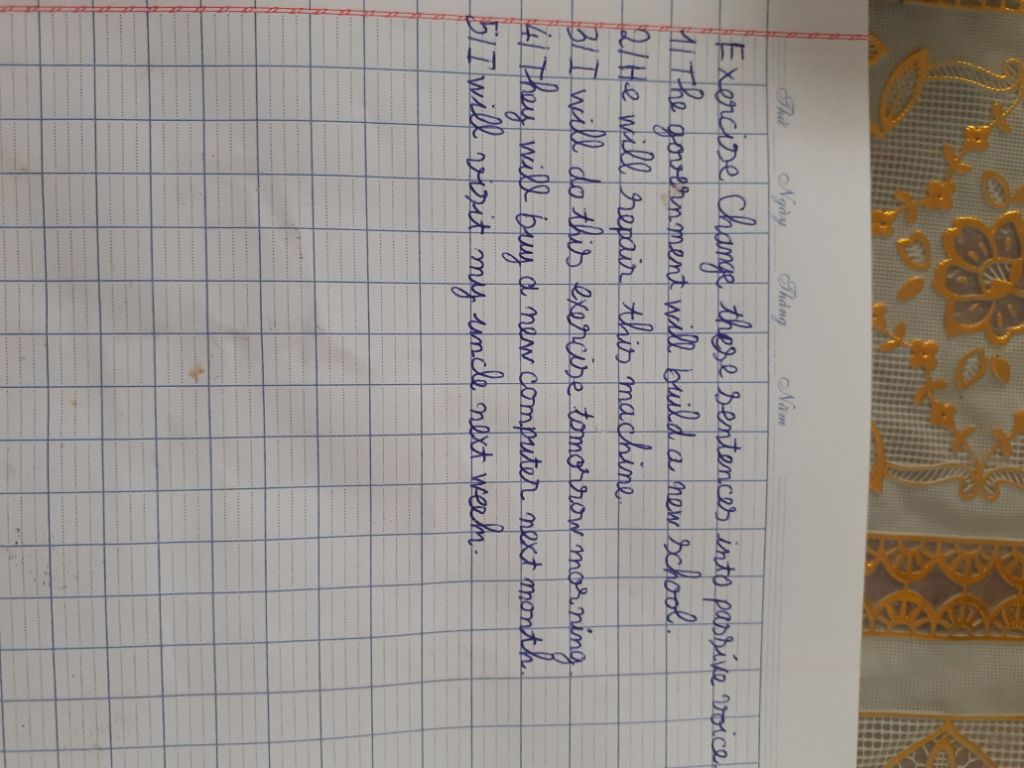 Thứ Ngày Tháng Năm
Exercise Change these sentences into passive voice
1) The government will build a new school.
2) He will repair this machine.
3) I will do this exercise tomorrow morning.
4) They will buy a new computer next month.
5) I will visit my uncle next week.